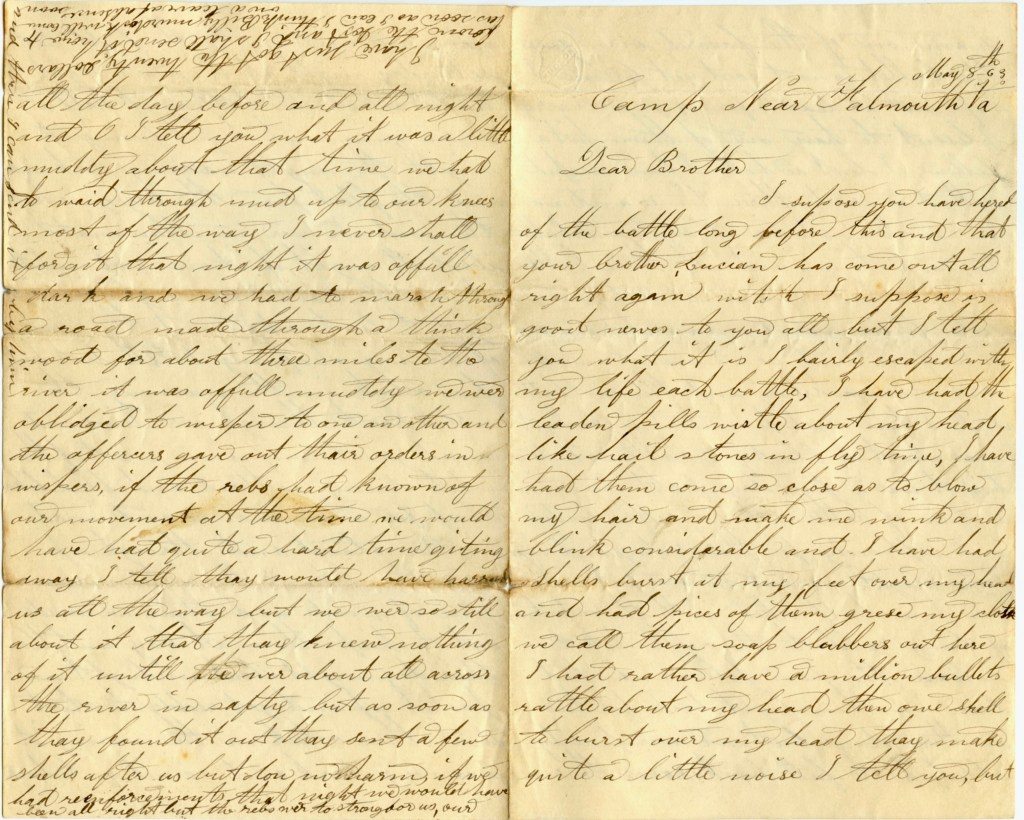 May 8th 63
Camp Near Falmouth Va
Dear Brother
I supose you have hered
of the battle long before this and that
your brother Lucian has come out all
right again witch I suppose is
good newes to you all but I tell
you what it is I bairly escaped with
my life each battle, I have had the
leaden pills wistle about my head,
like hail stones in fly time, I have
had them come so close as to blow
my hair and make me wink and
blink considerable and I have had
shells burst at my feet over my head
and had pices of them grese my cloths
we call them soap blabbers out here
I had rather have a million bullets
rattle about my head then one shell
to burst over my head thay make
quite a little noise I tell you, but
all the day before and all night
and O I tell you what it was a little
muddy about that time we had
to waid through mud up to our knees
most of the way I never shall
forgit that night it was offull
dark and we had to marsh throug
a road made through a think
wood for about three miles to the
river it was offull muddy we wer
oblidged to wisper to one an other and
the offercers gave out thair orders in
wispers, if the rebs had known of
our movement at the time we would
have had quite a hard time giting
away I tell thay would have harras
us all the way but we wer so still
about it that thay knew nothing
of it untill we wer about all across
the river in safty but as soon as
thay found it out thay sent a few
shells after us but don no harm, if we
had reinforcements that night we would have
been all right but the rebs wer to strong for us, our
I have just got the twenty dollars
the and I shall send it home to
as soon as I can I think Billy murdock will come
on a leave of absence soon
and then I can send it by him